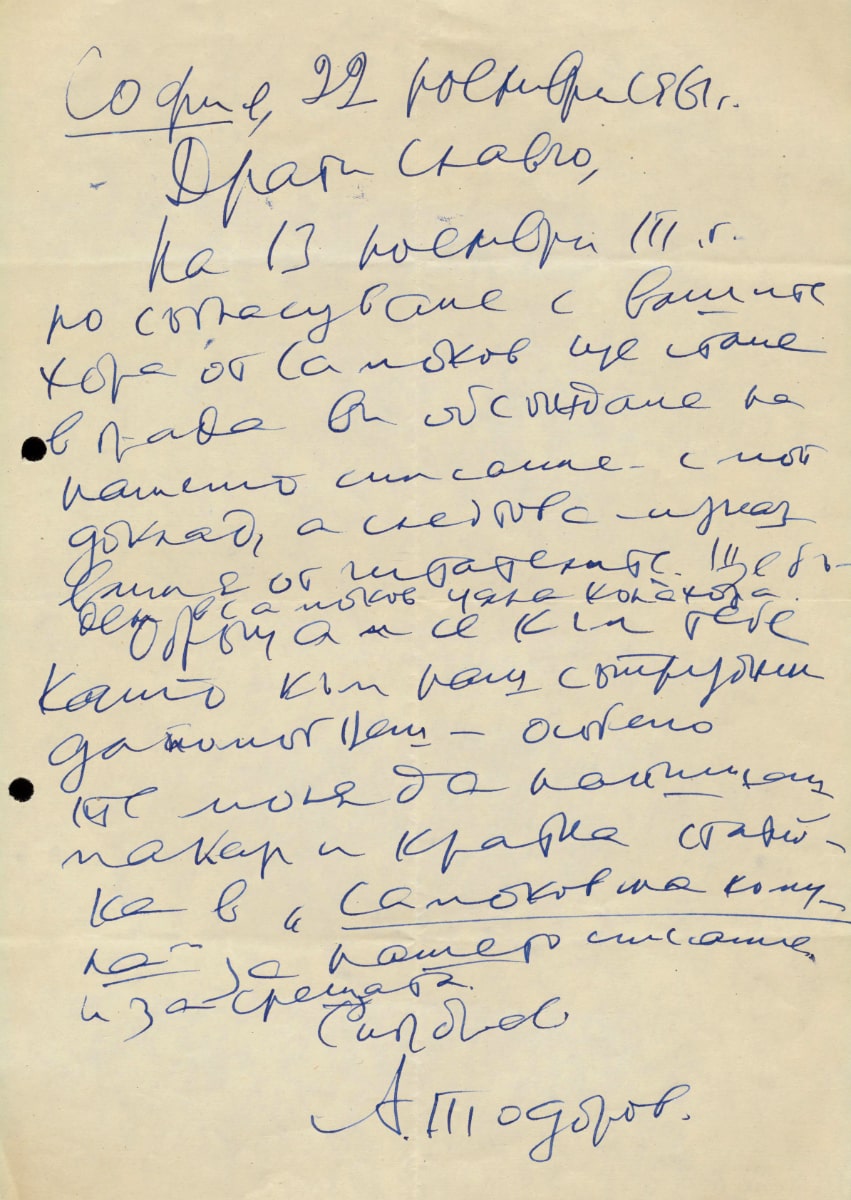 София, 22 ноември 1961 г.
Драги Славчо,
На 13 ноември т.г.
по съгласуване с вашите
хора от Самоков ще стане
в града ви обсъждане на
нашето списание с мой
доклад, а след това – изказ
вания от читателите. Ще бъ-
дем в Самоков
Обръщам се към тебе
като към наш сътрудник
да помогнеш – особено
те моля да напишеш
макар и кратка статий-
ка в „Самоковска кому-
на“ за нашето списание
и за срещата.
Сърдечно
А. Тодоров.